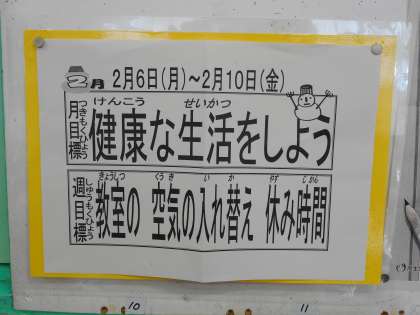 2月 2月6日(月)~2月10日(金)
つきもくひょう
月目標
けんこう せいかつ
健康な生活をしよう
しゅうもくひょう
週目標
きょうしつ くうき い か やす じかん
教室の 空気の入れ替え 休み時間
10 11